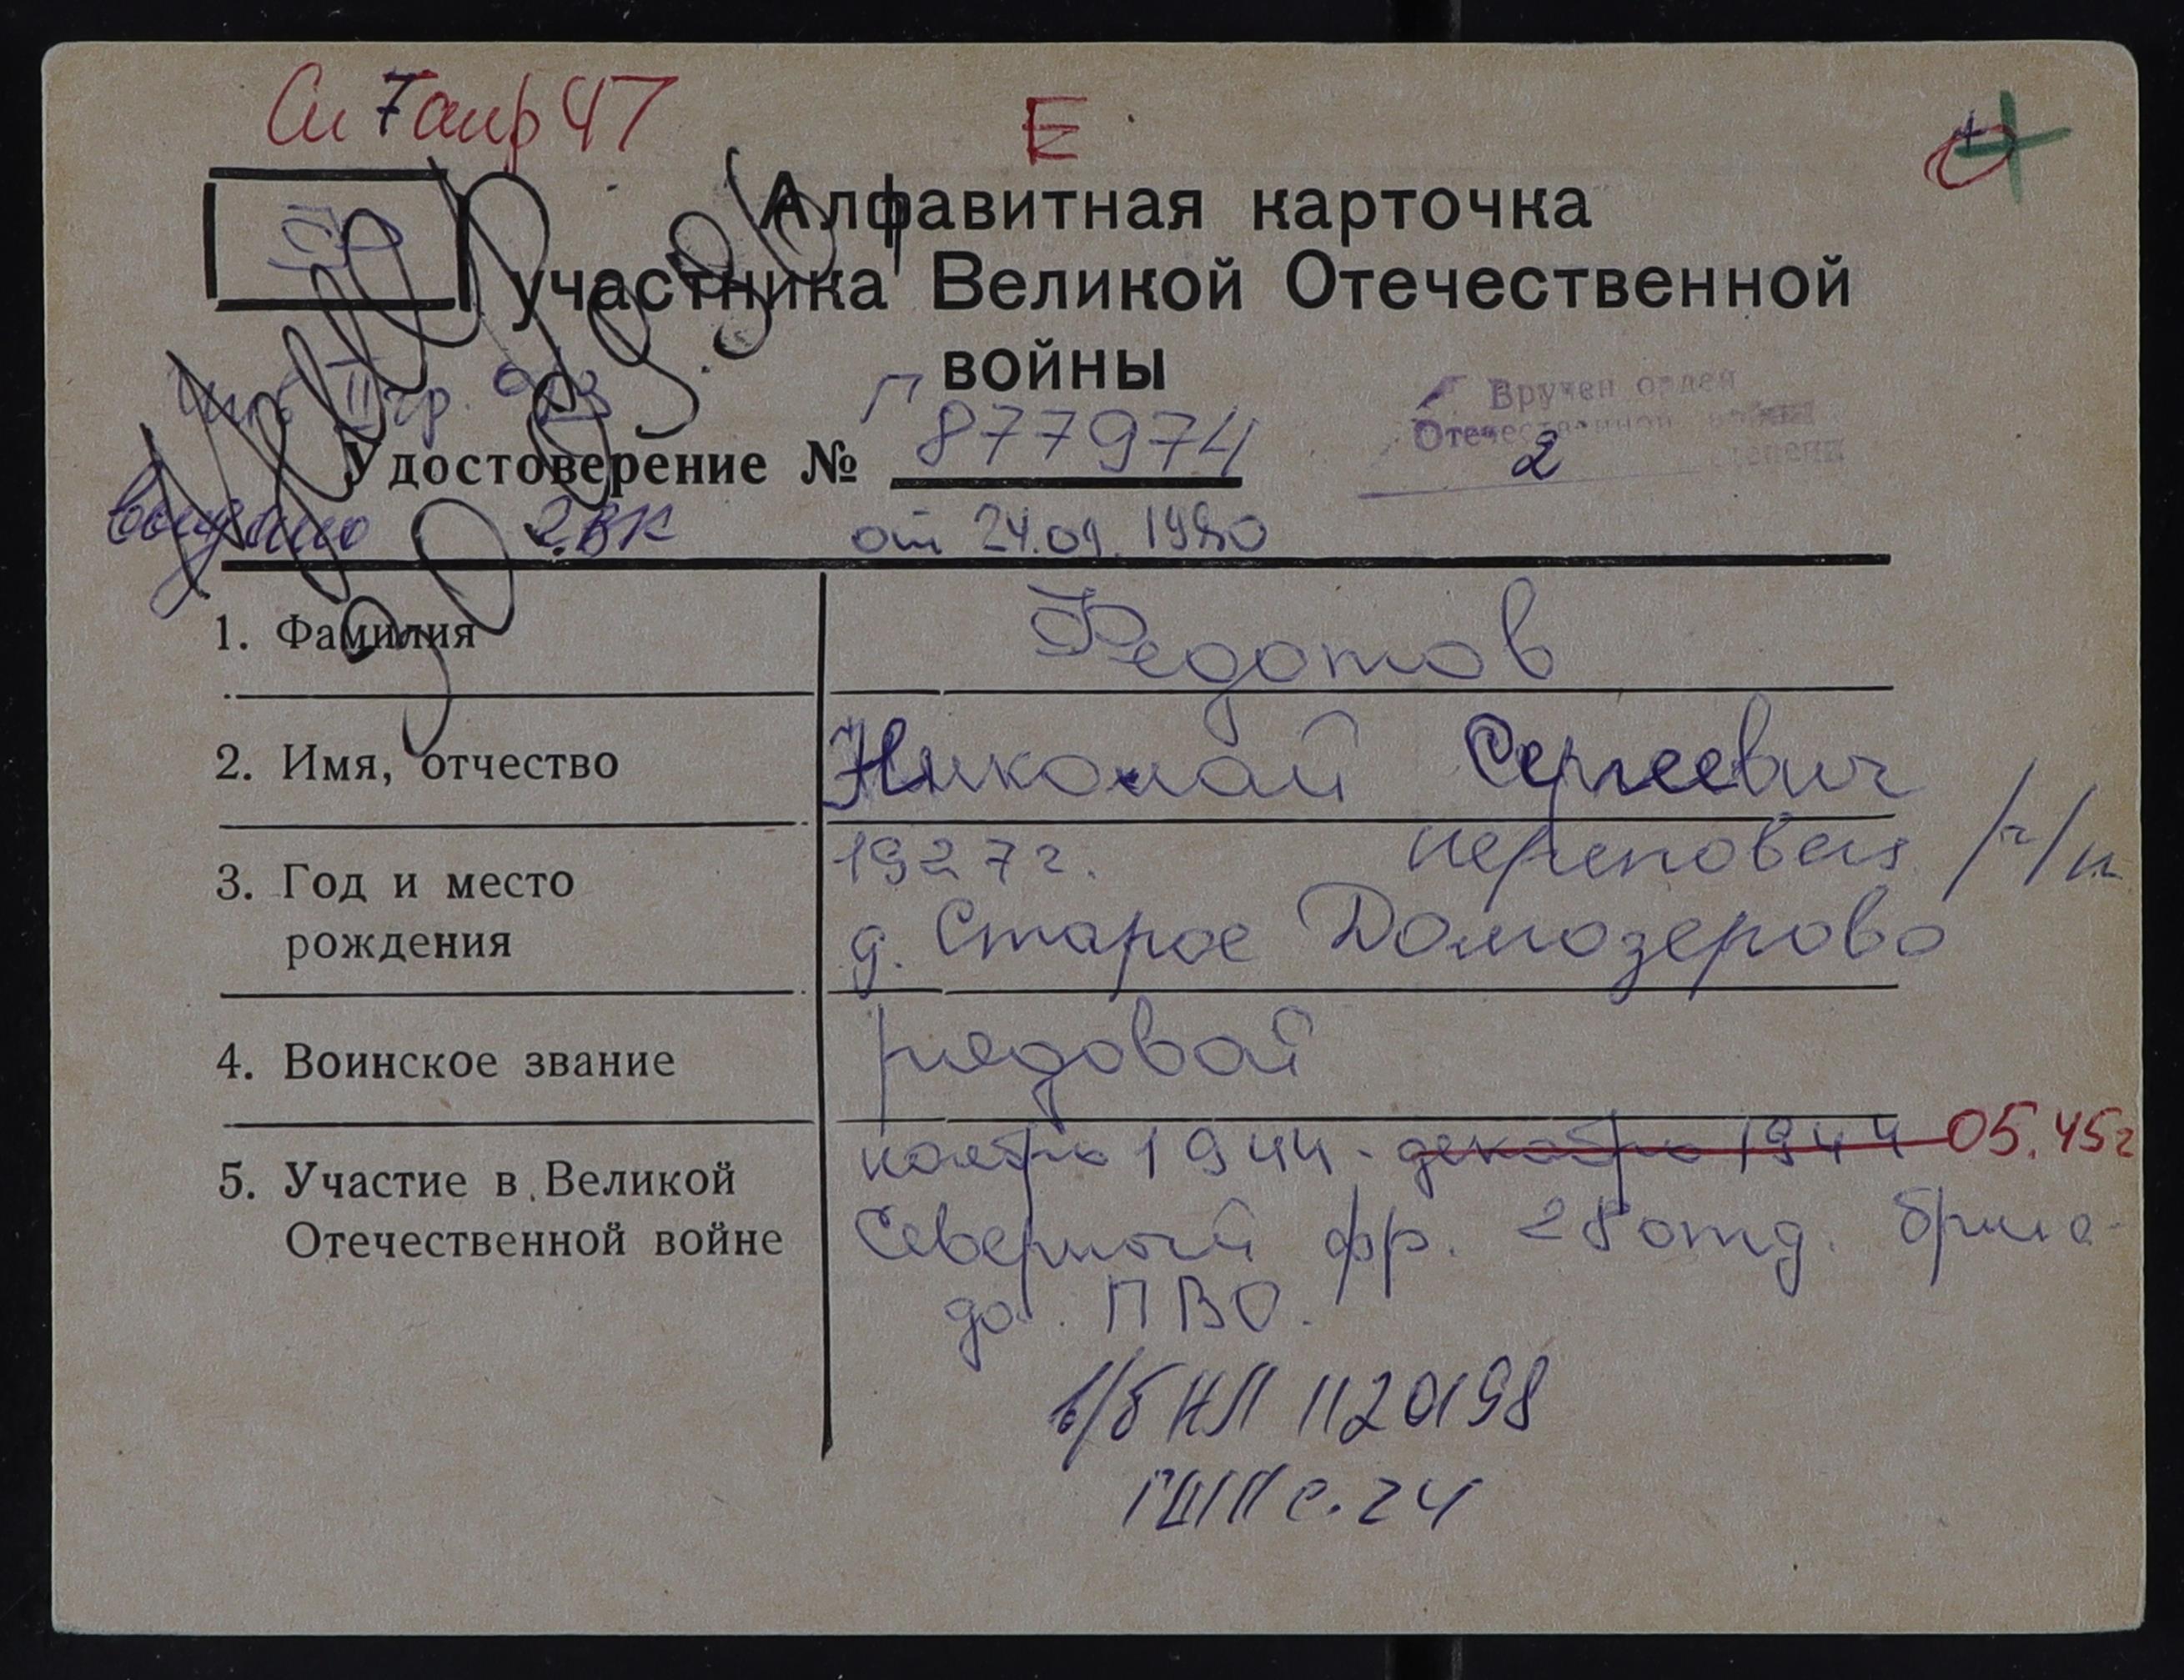 7 апр 47
Е
Алфавитная карточка
участника Великой Отечественной
войны
II гр.
Вручен орден
Отечественной войны
2 степени
Удостоверение № Г 877974
выдано 2ВК от 24.09.1980
1. Фамилия Федотов
2. Имя, отчество Николай Сергеевич
3. Год и место 1927г. Череповец
рождения д. Старое Домозерово
4. Воинское звание рядовой
5. Участие в Великой ноябрь 1944 - декабрь 1944 05.45г
Отечественной войне Северный фр. 28 отд. брига-
да ПВО.
в/б НЛ 1120198
с. 24